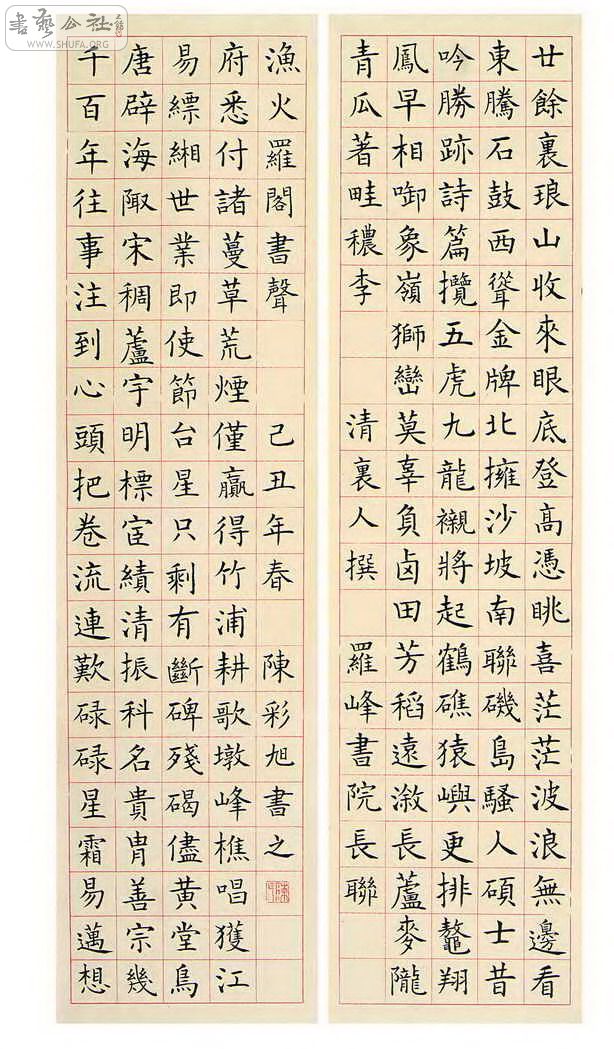 廿餘裏琅山收來眼底登高憑眺喜茫茫波浪無邊看
東騰石鼓西聳金牌北擁沙坡南聯磯島騷人碩士昔
吟勝跡詩篇攬五虎九龍襯將起鶴礁猿嶼更排鼇翔
鳳早相啣象嶺獅巒莫辜負鹵田芳稻遠漵長蘆麥隴
青瓜著畦穠李 清裏人撰 羅峰書院長聯
千百年往事注到心頭把卷流連歎碌碌星霜易邁想
唐辟海陬宋稠蘆宇明標宦績清振科名貴胄善宗幾
易縹緗世業即使節台星只剩有斷碑殘碣儘黃堂烏
府悉付諸蔓草荒煙僅贏得竹浦耕歌墩峰樵唱獲江
漁火羅閣書聲 己丑年春 陳彩旭書之
書藝公社
WWW.SHUFA.ORG